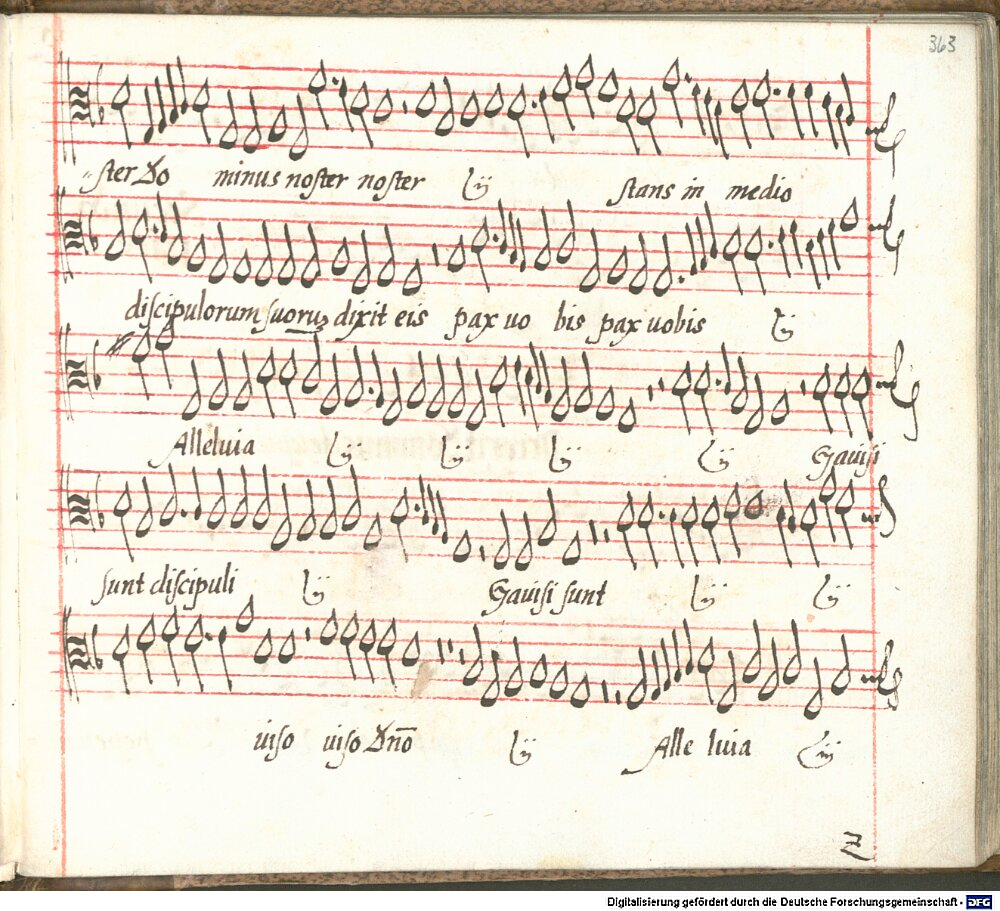 363
ster Do minus noster noster ij stans in medio
discipulorum suoruʒ dixit eis pax uo bis pax uobis ij
Alleluia ij ij ij ij Gauisi
sunt discipuli ij Gauisi sunt ij ij
uiso uiso Dn̄o ij Alle luia ij
Digitalisierung gefördert durch die Deutsche Forschungsgemeinschaft - DFG